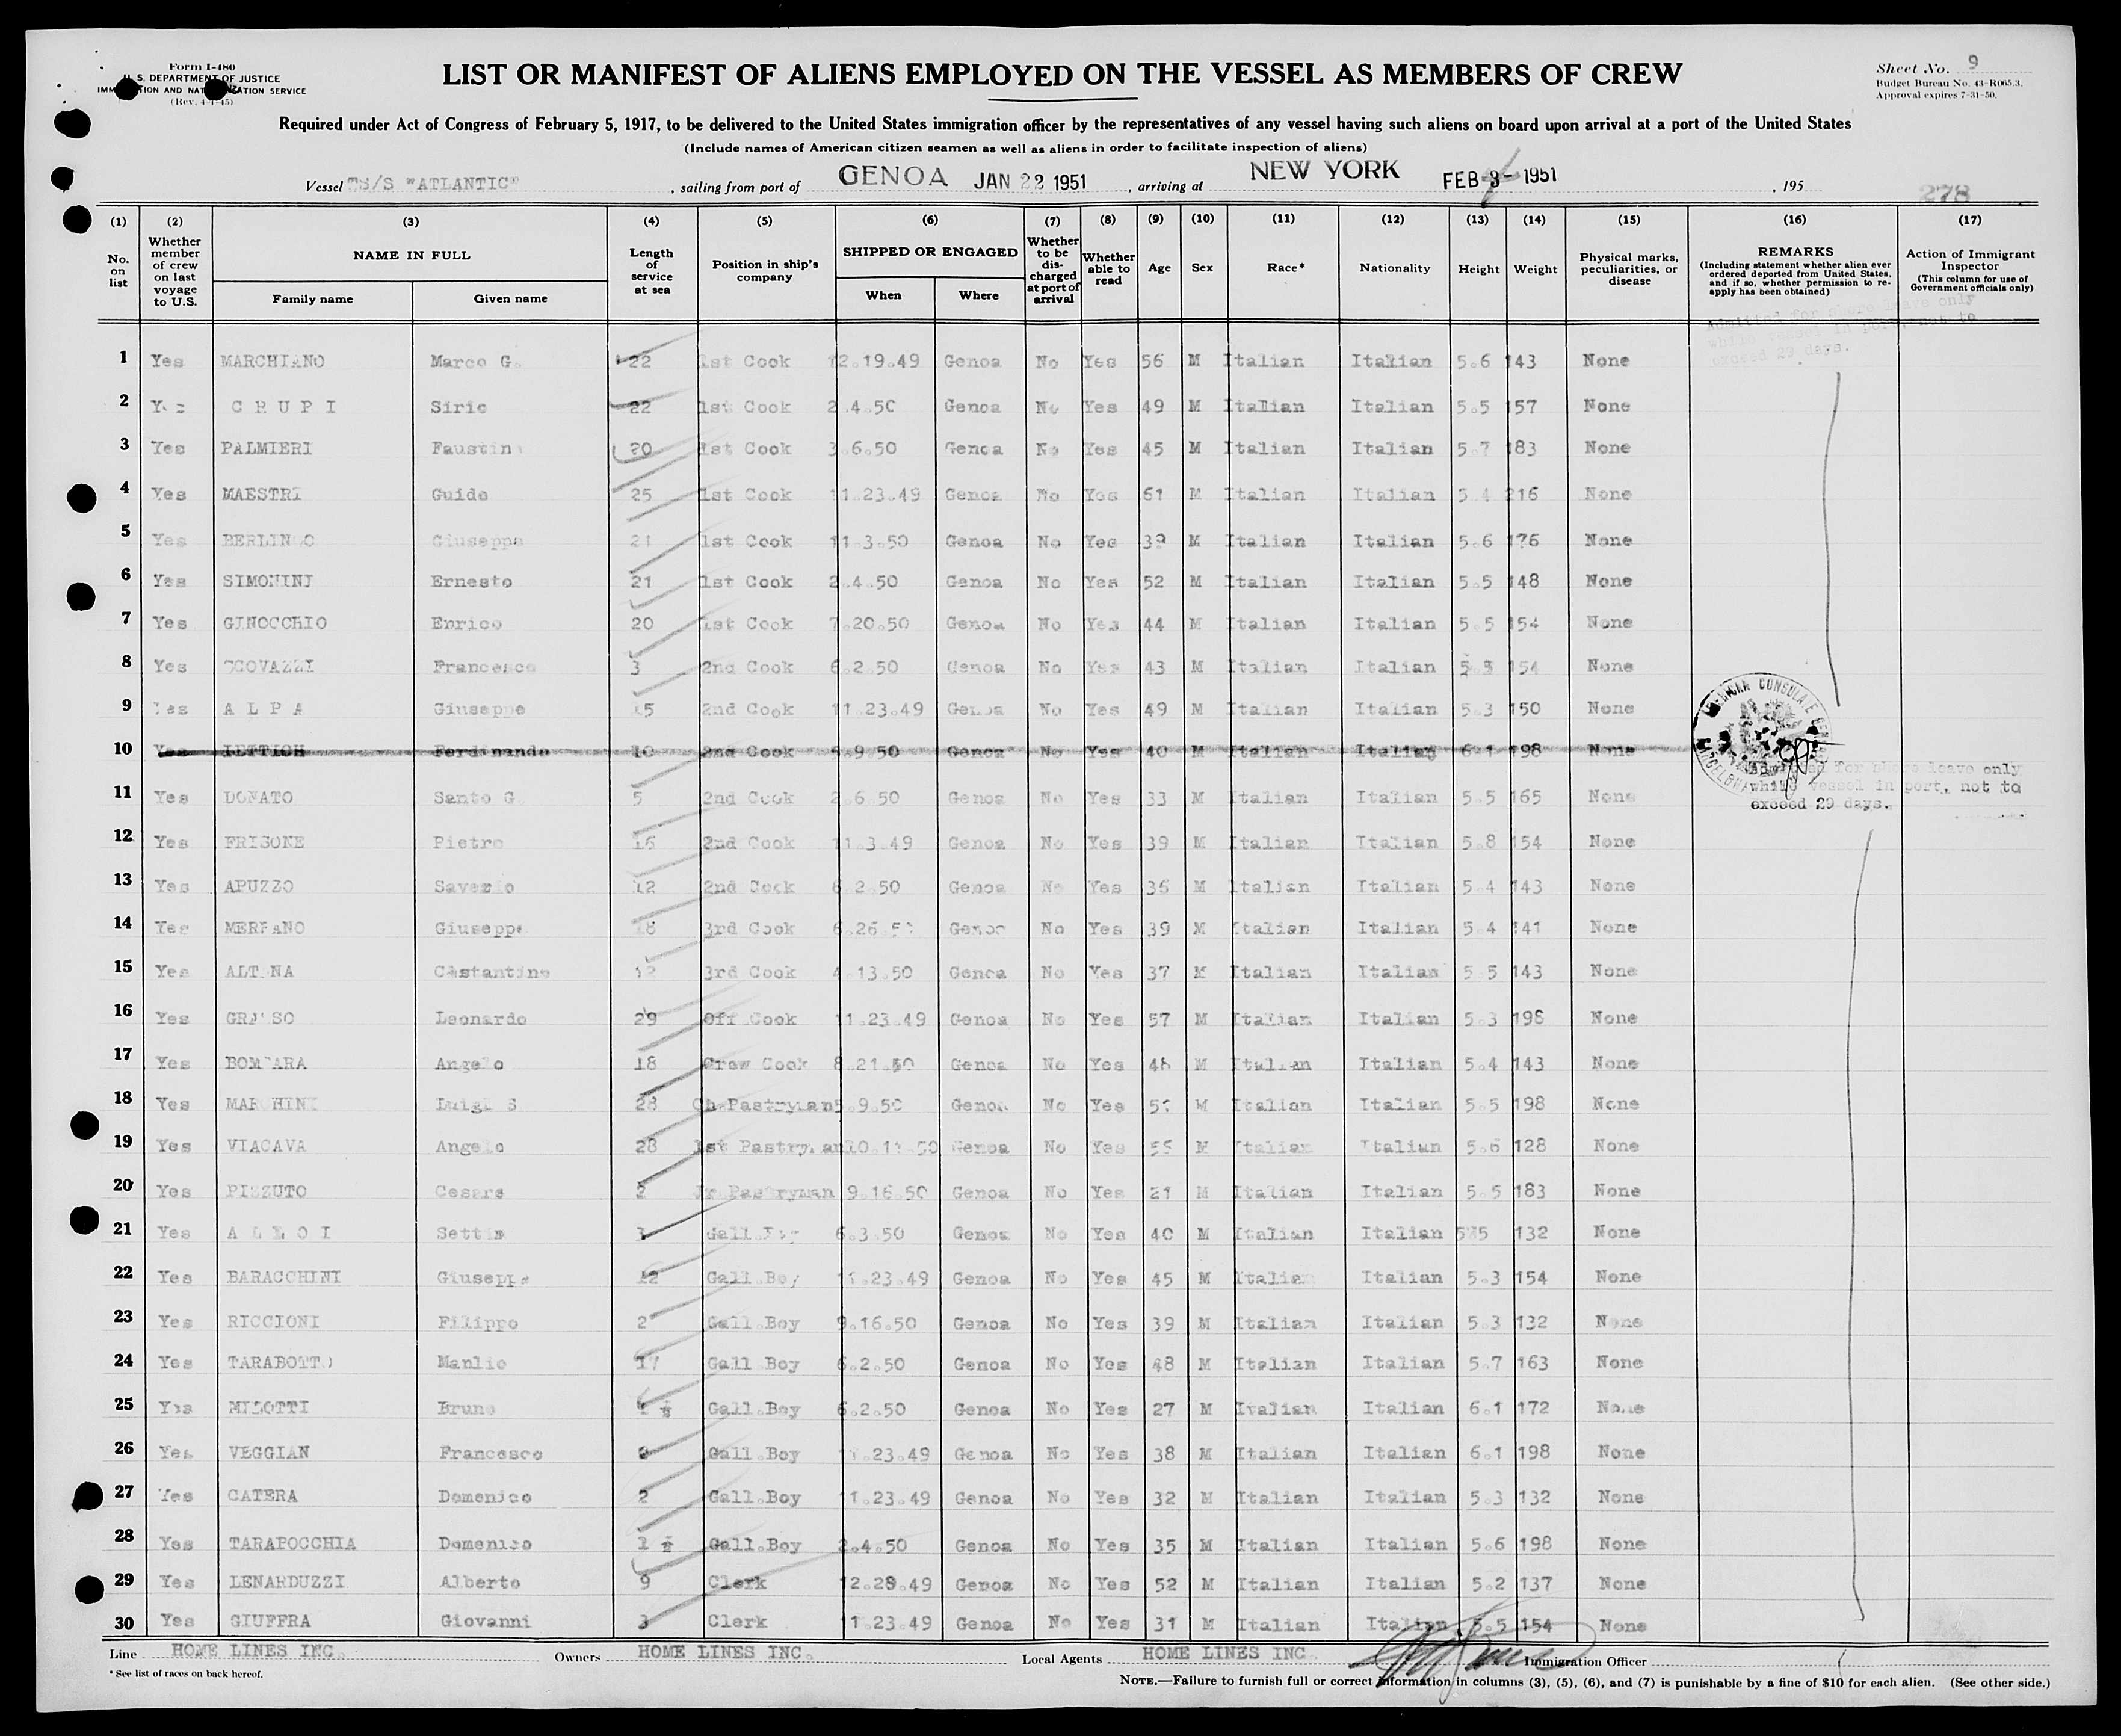 Form I-480
U. S. DEPARTMENT OF JUSTICE
IMMIGRATION AND NATURALIZATION SERVICE
(Rev. 4-1-45)
LIST OR MANIFEST OF ALIENS EMPLOYED ON THE VESSEL AS MEMBERS OF CREW
Sheet No. 9
Budget Bureau No. 43-R065.3.
Approval expires 7-31-50.
Required under Act of Congress of February 5, 1917, to be delivered to the United States immigration officer by the representatives of any vessel having such aliens on board upon arrival at a port of the United States
(Include names of American citizen seamen as well as aliens in order to facilitate inspection of aliens)
Vessel TS/S "ATLANTIC", sailing from port of GENOA JAN 22 1951, arriving at NEW YORK FEB 3- 1951, 195
278
(1) (2) (3) (4) (5) (6) (7) (8) (9) (10) (11) (12) (13) (14) (15) (16) (17)
No. on list
Whether member of crew on last voyage to U.S.
NAME IN FULL
Family name
Given name
Length of service at sea
Position in ship's company
SHIPPED OR ENGAGED
When
Where
Whether to be discharged at port of arrival
Whether able to read
Age
Sex
Race*
Nationality
Height
Weight
Physical marks, peculiarities, or disease
REMARKS
(Including statement whether alien ever ordered deported from United States, and if so, whether permission to re-apply has been obtained)
Action of Immigrant Inspector
(This column for use of Government officials only)
Admitted for shore leave only
while vessel in port, not to
exceed 29 days.
1 Yes MARCHIANO Marco G. 22 1st Cook 12.19.49 Genoa No Yes 56 M Italian Italian 5.6 143 None
2 Yes CRUPI Siric 22 1st Cook 2.4.50 Genoa No Yes 49 M Italian Italian 5.5 157 None
3 Yes PALMIERI Faustin 20 1st Cook 3.6.50 Genoa No Yes 45 M Italian Italian 5.7 183 None
4 Yes MAESTRI Guido 25 1st Cook 11.23.49 Genoa No Yes 61 M Italian Italian 5.4 216 None
5 Yes Giuseppe 21 1st Cook 11.3.50 Genoa No Yes 39 M Italian Italian 5.6 176 None
6 Yes SIMONINI Ernesto 21 1st Cook 2.4.50 Genoa No Yes 52 M Italian Italian 5.5 148 None
7 Yes GINOCCHIO Enrico 20 1st Cook 7.20.50 Genoa No Yes 44 M Italian Italian 5.5 154 None
8 Yes SCOVAZZI Francesco 3 2nd Cook 6.2.50 Genoa No Yes 43 M Italian Italian 5.5 154 None
9 Yes ALPA Giuseppe 15 2nd Cook 11.23.49 Genoa No Yes 49 M Italian Italian 5.3 150 None
10 Yes LETTICH Ferdinando 10 2nd Cook 5.9.50 Genoa No Yes 40 M Italian Italian 6.1 198 None
Admitted for shore leave only
while vessel in port, not to
exceed 29 days.
11 Yes DONATO Santo G. 5 2nd Cook 2.6.50 Genoa No Yes 33 M Italian Italian 5.5 165 None
12 Yes FRISONE Pietro 16 2nd Cook 11.3.49 Genoa No Yes 39 M Italian Italian 5.8 154 None
13 Yes APUZZO Saverio 12 2nd Cook 6.2.50 Genoa No Yes 36 M Italian Italian 5.4 143 None
14 Yes Giuseppe 18 3rd Cook 6.26.50 Genoa No Yes 39 M Italian Italian 5.4 141 None
15 Yes Castantino 12 3rd Cook 4.13.50 Genoa No Yes 37 M Italian Italian 5.5 143 None
16 Yes GRASSO Leonardo 29 Off Cook 11.23.49 Genoa No Yes 57 M Italian Italian 5.3 198 None
17 Yes BOMBARA Angelo 18 Crew Cook 8.21.50 Genoa No Yes 48 M Italian Italian 5.4 143 None
18 Yes MARCHINI Luigi S 28 Ch Pastryman 5.9.50 Genoa No Yes M Italian Italian 5.5 198 None
19 Yes VIACAVA Angelo 28 1st Pastryman 10.11.50 Genoa No Yes M Italian Italian 5.6 128 None
20 Yes PIZZUTO Cesare 2 Jr Pastryman 9.16.50 Genoa No Yes 21 M Italian Italian 5.5 183 None
21 Yes ALLOI Settim Gall.Boy 6.3.50 Genoa No Yes 40 M Italian Italian 5.5 132 None
22 Yes BARACCHINI Giuseppe 12 Gall.Boy 11.23.49 Genoa No Yes 45 M Italian Italian 5.3 154 None
23 Yes RICCIONI Filippo 2 Gall.Boy 9.16.50 Genoa No Yes 39 M Italian Italian 5.3 132 None
24 Yes TARABOTTO Manlio 17 Gall Boy 6.2.50 Genoa No Yes 48 M Italian Italian 5.7 163 None
25 Yes MILOTTI Bruno Gall.Boy 6.2.50 Genoa No Yes 27 M Italian Italian 6.1 172 None
26 Yes VEGGIAN Francesco Gall.Boy 11.23.49 Genoa No Yes 38 M Italian Italian 6.1 198 None
27 Yes CATERA Domenico 2 Gall.Boy 11.23.49 Genoa No Yes 32 M Italian Italian 5.3 132 None
28 Yes TARAPOCCHIA Domenico 1 ½ Gall.Boy 2.4.50 Genoa No Yes 35 M Italian Italian 5.6 198 None
29 Yes LENARDUZZI Alberto 9 Clerk 12.28.49 Genoa No Yes 52 M Italian Italian 5.2 137 None
30 Yes GIUFFRA Giovanni 3 Clerk 11.23.49 Genoa No Yes 31 M Italian Italian 5.5 154 None
Line HOME LINES INC. Owners HOME LINES INC. Local Agents HOME LINES INC. Immigration Officer
* See list of races on back hereof.
NOTE.—Failure to furnish full or correct information in columns (3), (5), (6), and (7) is punishable by a fine of $10 for each alien. (See other side.)